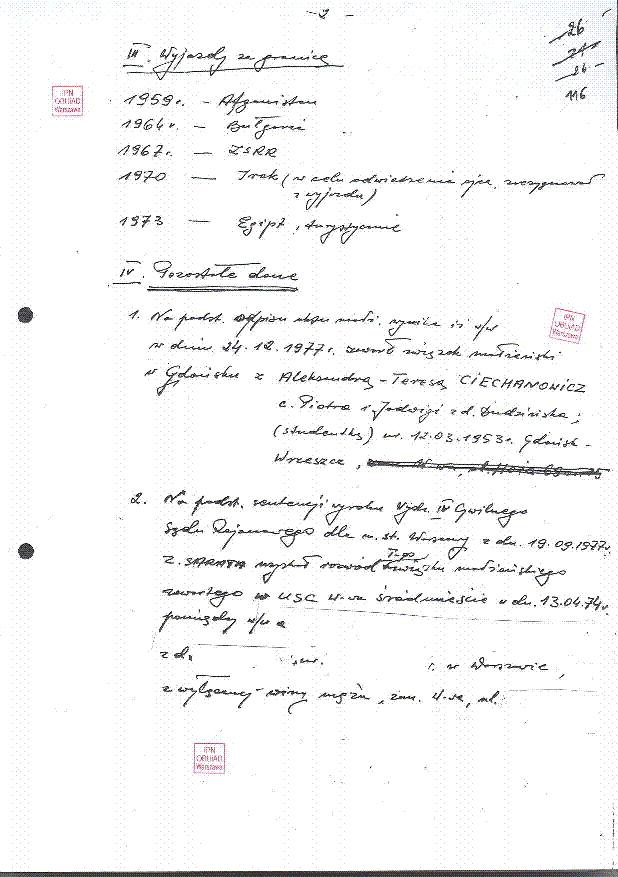 - 2 -
26
24
26
116
III. Wyjazdy za granicę
IPN
OBUiAD
Warszawa
1959 r. - Afganistan
1964 r. — Bułgaria
1967 r. — ZSRR
1970 — Irak (w celu odwiedzenia ojca, zrezygnował
z wyjazdu)
1973 — Egipt, turystycznie
IV. Pozostałe dane
IPN
OBUiAD
Warszawa
1. Na podst. odpisu aktu małż. wynika iż w/w
w dniu 24.12.1977 r. zawarł związek małżeński
w Gdańsku z Aleksandrą - Teresą CIECHANOWICZ
c. Piotra i Jadwigi z d. Dudzińska;
(studentką) ur. 12.03.1953 r. Gdańsk -
Wrzeszcz,
2. Na podst. sentencji wyroku Wydz. IV Cywilnego
Sądu Rejonowego dla m. st. Warszawy z dn. 19.09.1977 r.
Z. SARATA uzyskał rozwód związku małżeńskiego
zawartego w USC W-wa Śródmieście w dn. 13.04.74 r.
pomiędzy w/w a
z d. , ur. r. w Warszawie,
z wyłącznej winy męża, zam. W-wa, ul.
IPN
OBUiAD
Warszawa